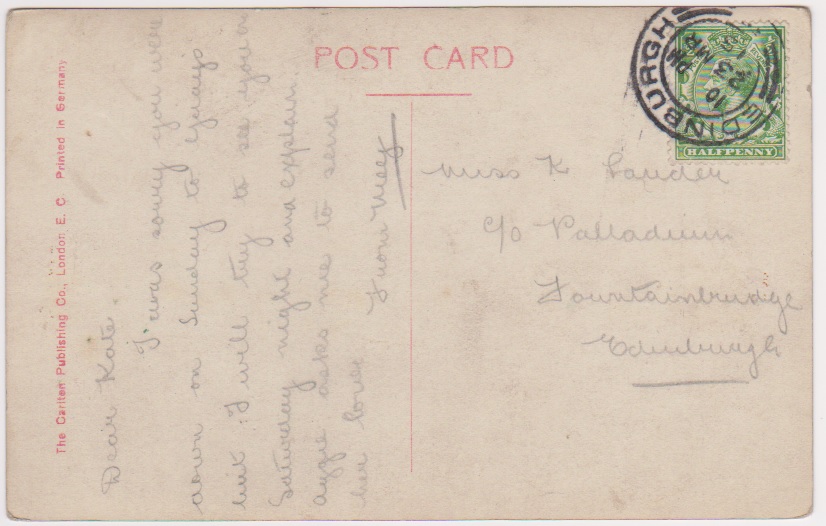 POST CARD
The Carlton Publishing Co., London E. C. Printed in Germany
Dear Kate.
I was sorry you were
down on Sunday to
but I will try to see you on
Saturday night and explain.
Aggie asks me to send
her love from Meg
EDINBURGH
10 PM
23 MR
HALFPENNY
Miss K Lauder
c/o Palladium
Fountainbridge
Edinburgh